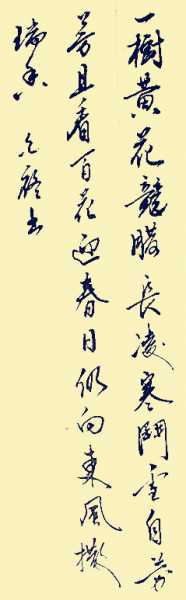 一樹黃花競臘長凌寒鬥雪自芬
芳且看百花迎春日仍向東風撒
瑞香 书